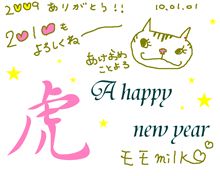 2009 ありがとう!!
10.01.01
2010も
よろしくね
あけおめ
ことよろ
虎
A happy
new year
モモmilk